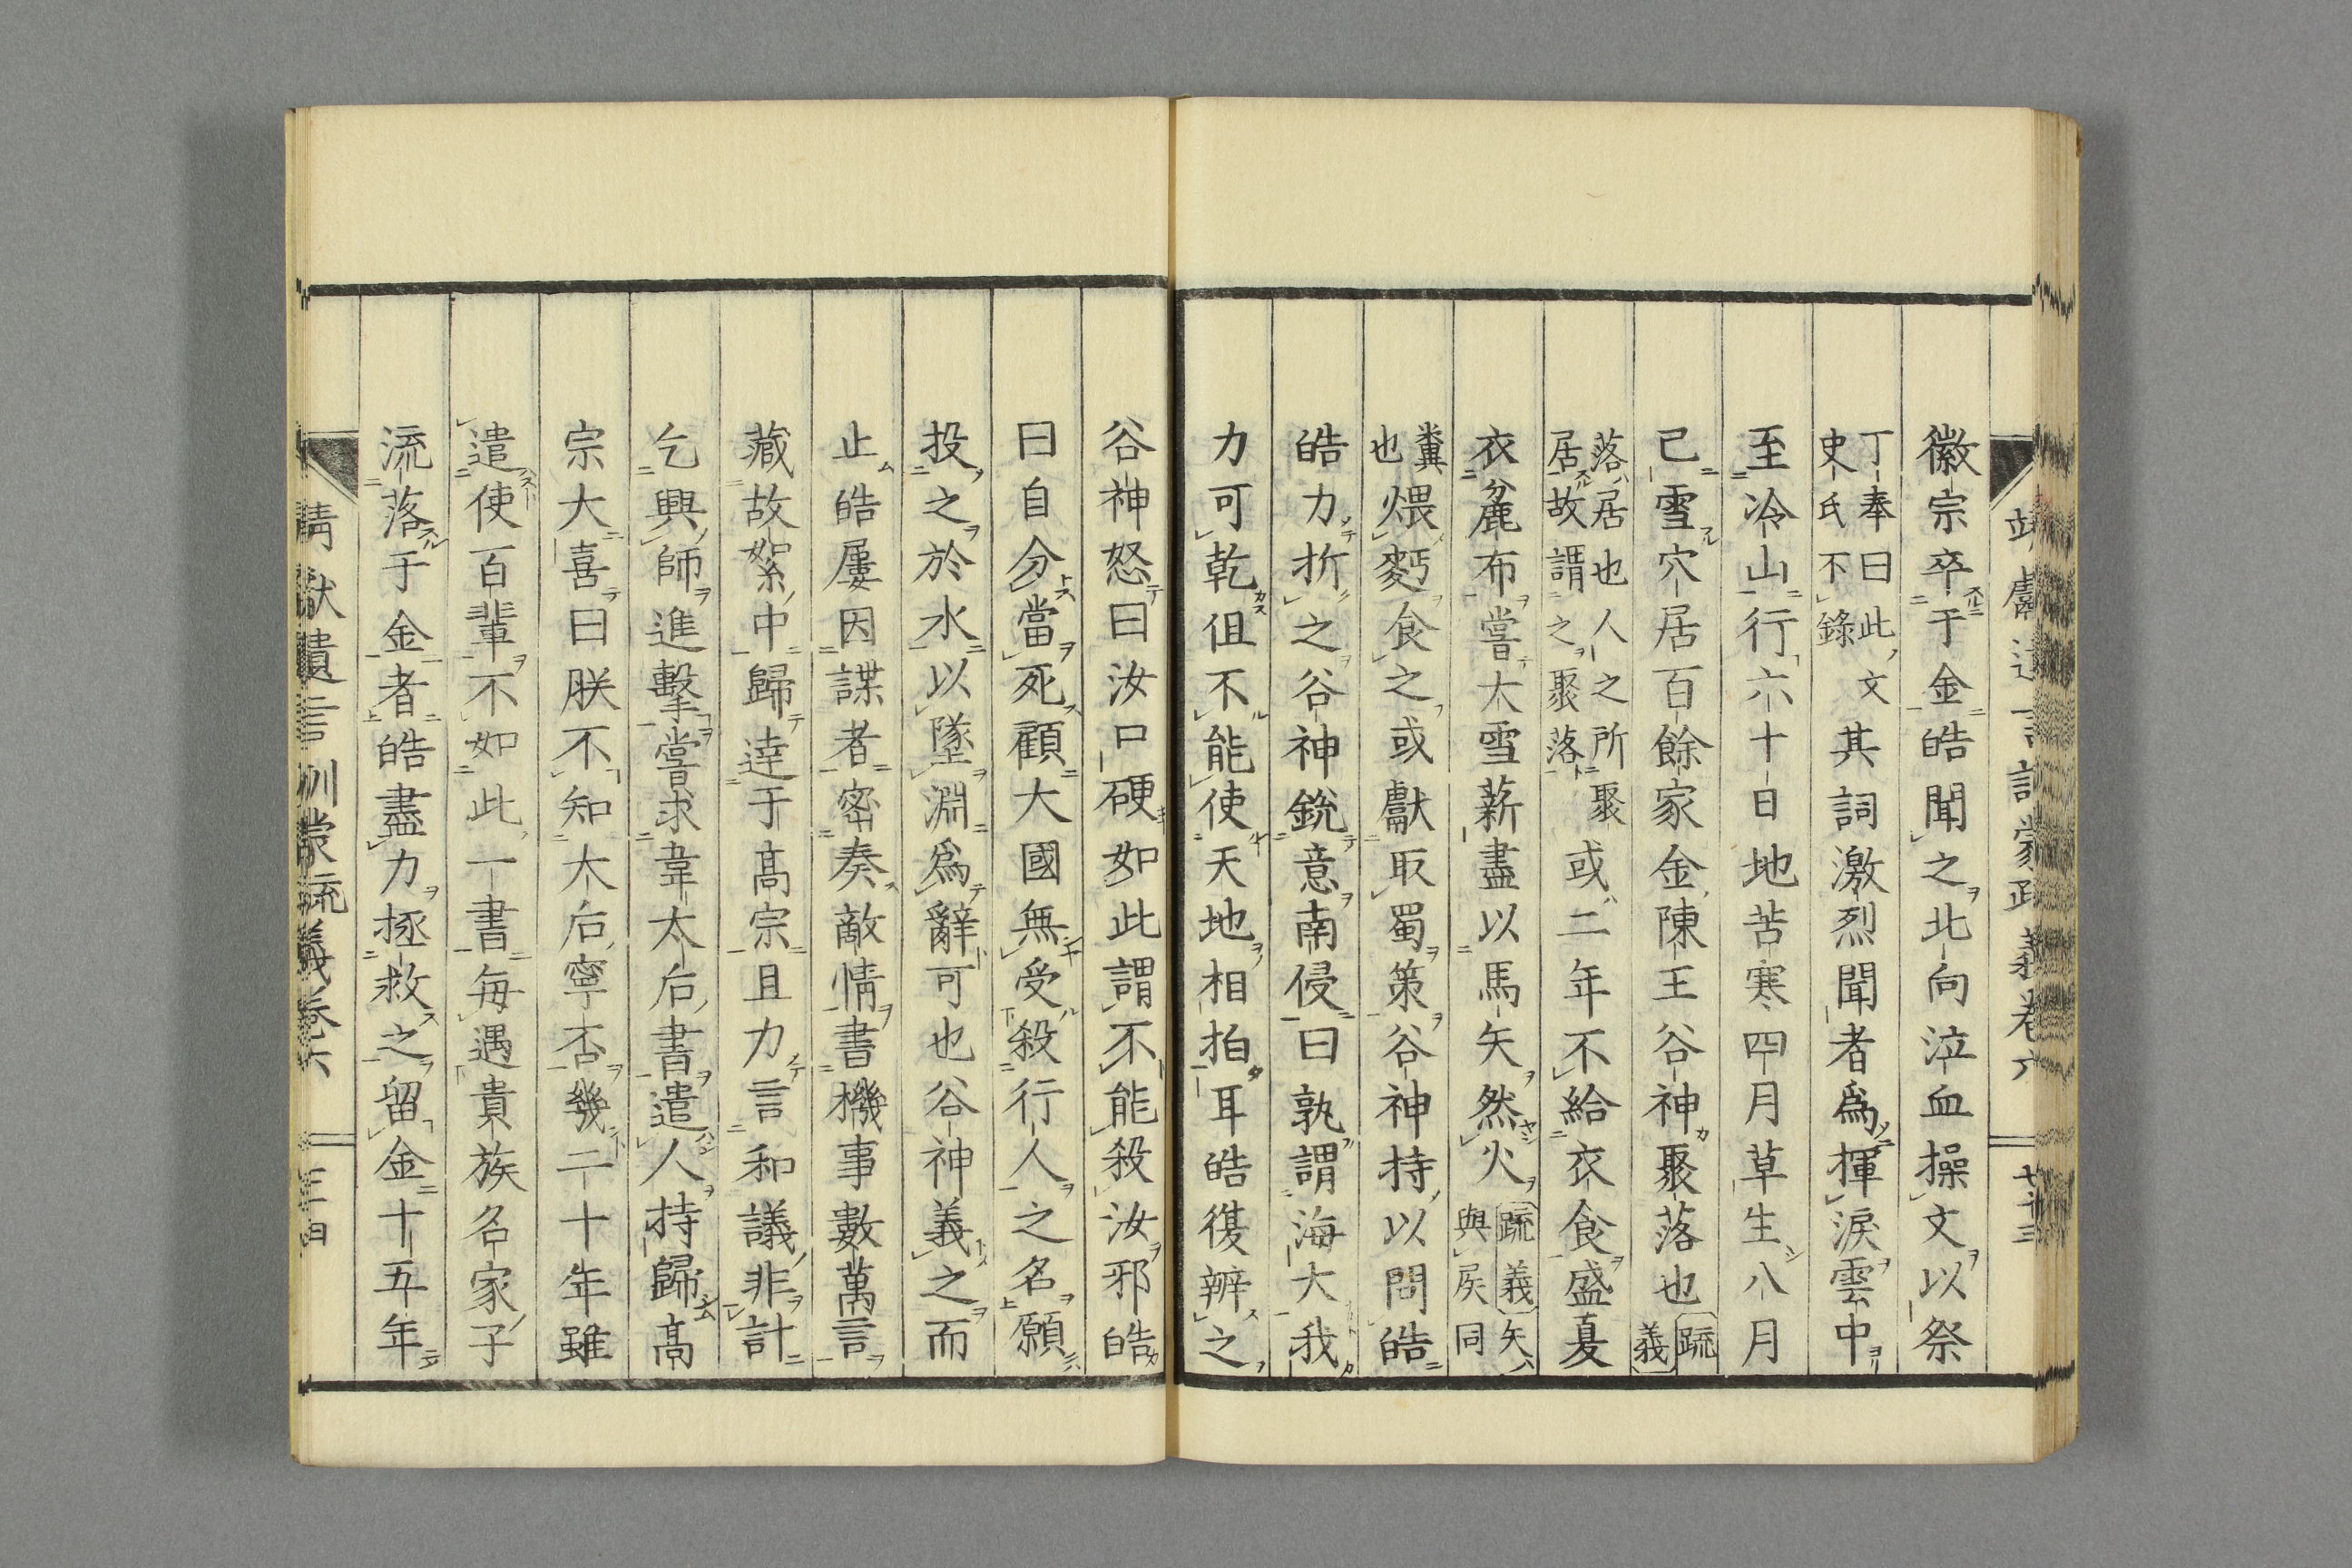 徽宗卒于金皓聞之北向泣血操文以祭
丁奉曰此文
史氏不錄
其詞激烈聞者爲揮淚雲中
至冷山行六十日地苦寒四月草生八月
已雪穴居百餘家金陳王谷神聚落也
疏
義
落居也人之所聚
居故謂之聚落
或二年不給衣食盛夏
衣麁布嘗大雪薪盡以馬矢然火
疏義矢
與𡱁同
糞
也
煨麪食之或獻取蜀策谷神持以問皓
皓力折之谷神銳意南侵曰孰謂海大我
力可乾但不能使天地相拍耳皓復辨之
谷神怒曰汝口硬如此謂不能殺汝邪皓
曰自分當死顧大國無受殺行人之名願
投之於水以墜淵爲辭可也谷神義之而
止皓屢因諜者密奏敵情書機事數萬言
藏故絮中歸達于高宗且力言和議非計
乞興師進擊嘗求韋太后書遣人持歸高
宗大喜曰朕不知太后寧否幾二十年雖
遣使百輩不如此一書每遇貴族名家子
流落于金者皓盡力拯救之留金十五年
靖獻遺言訓蒙疏義卷六